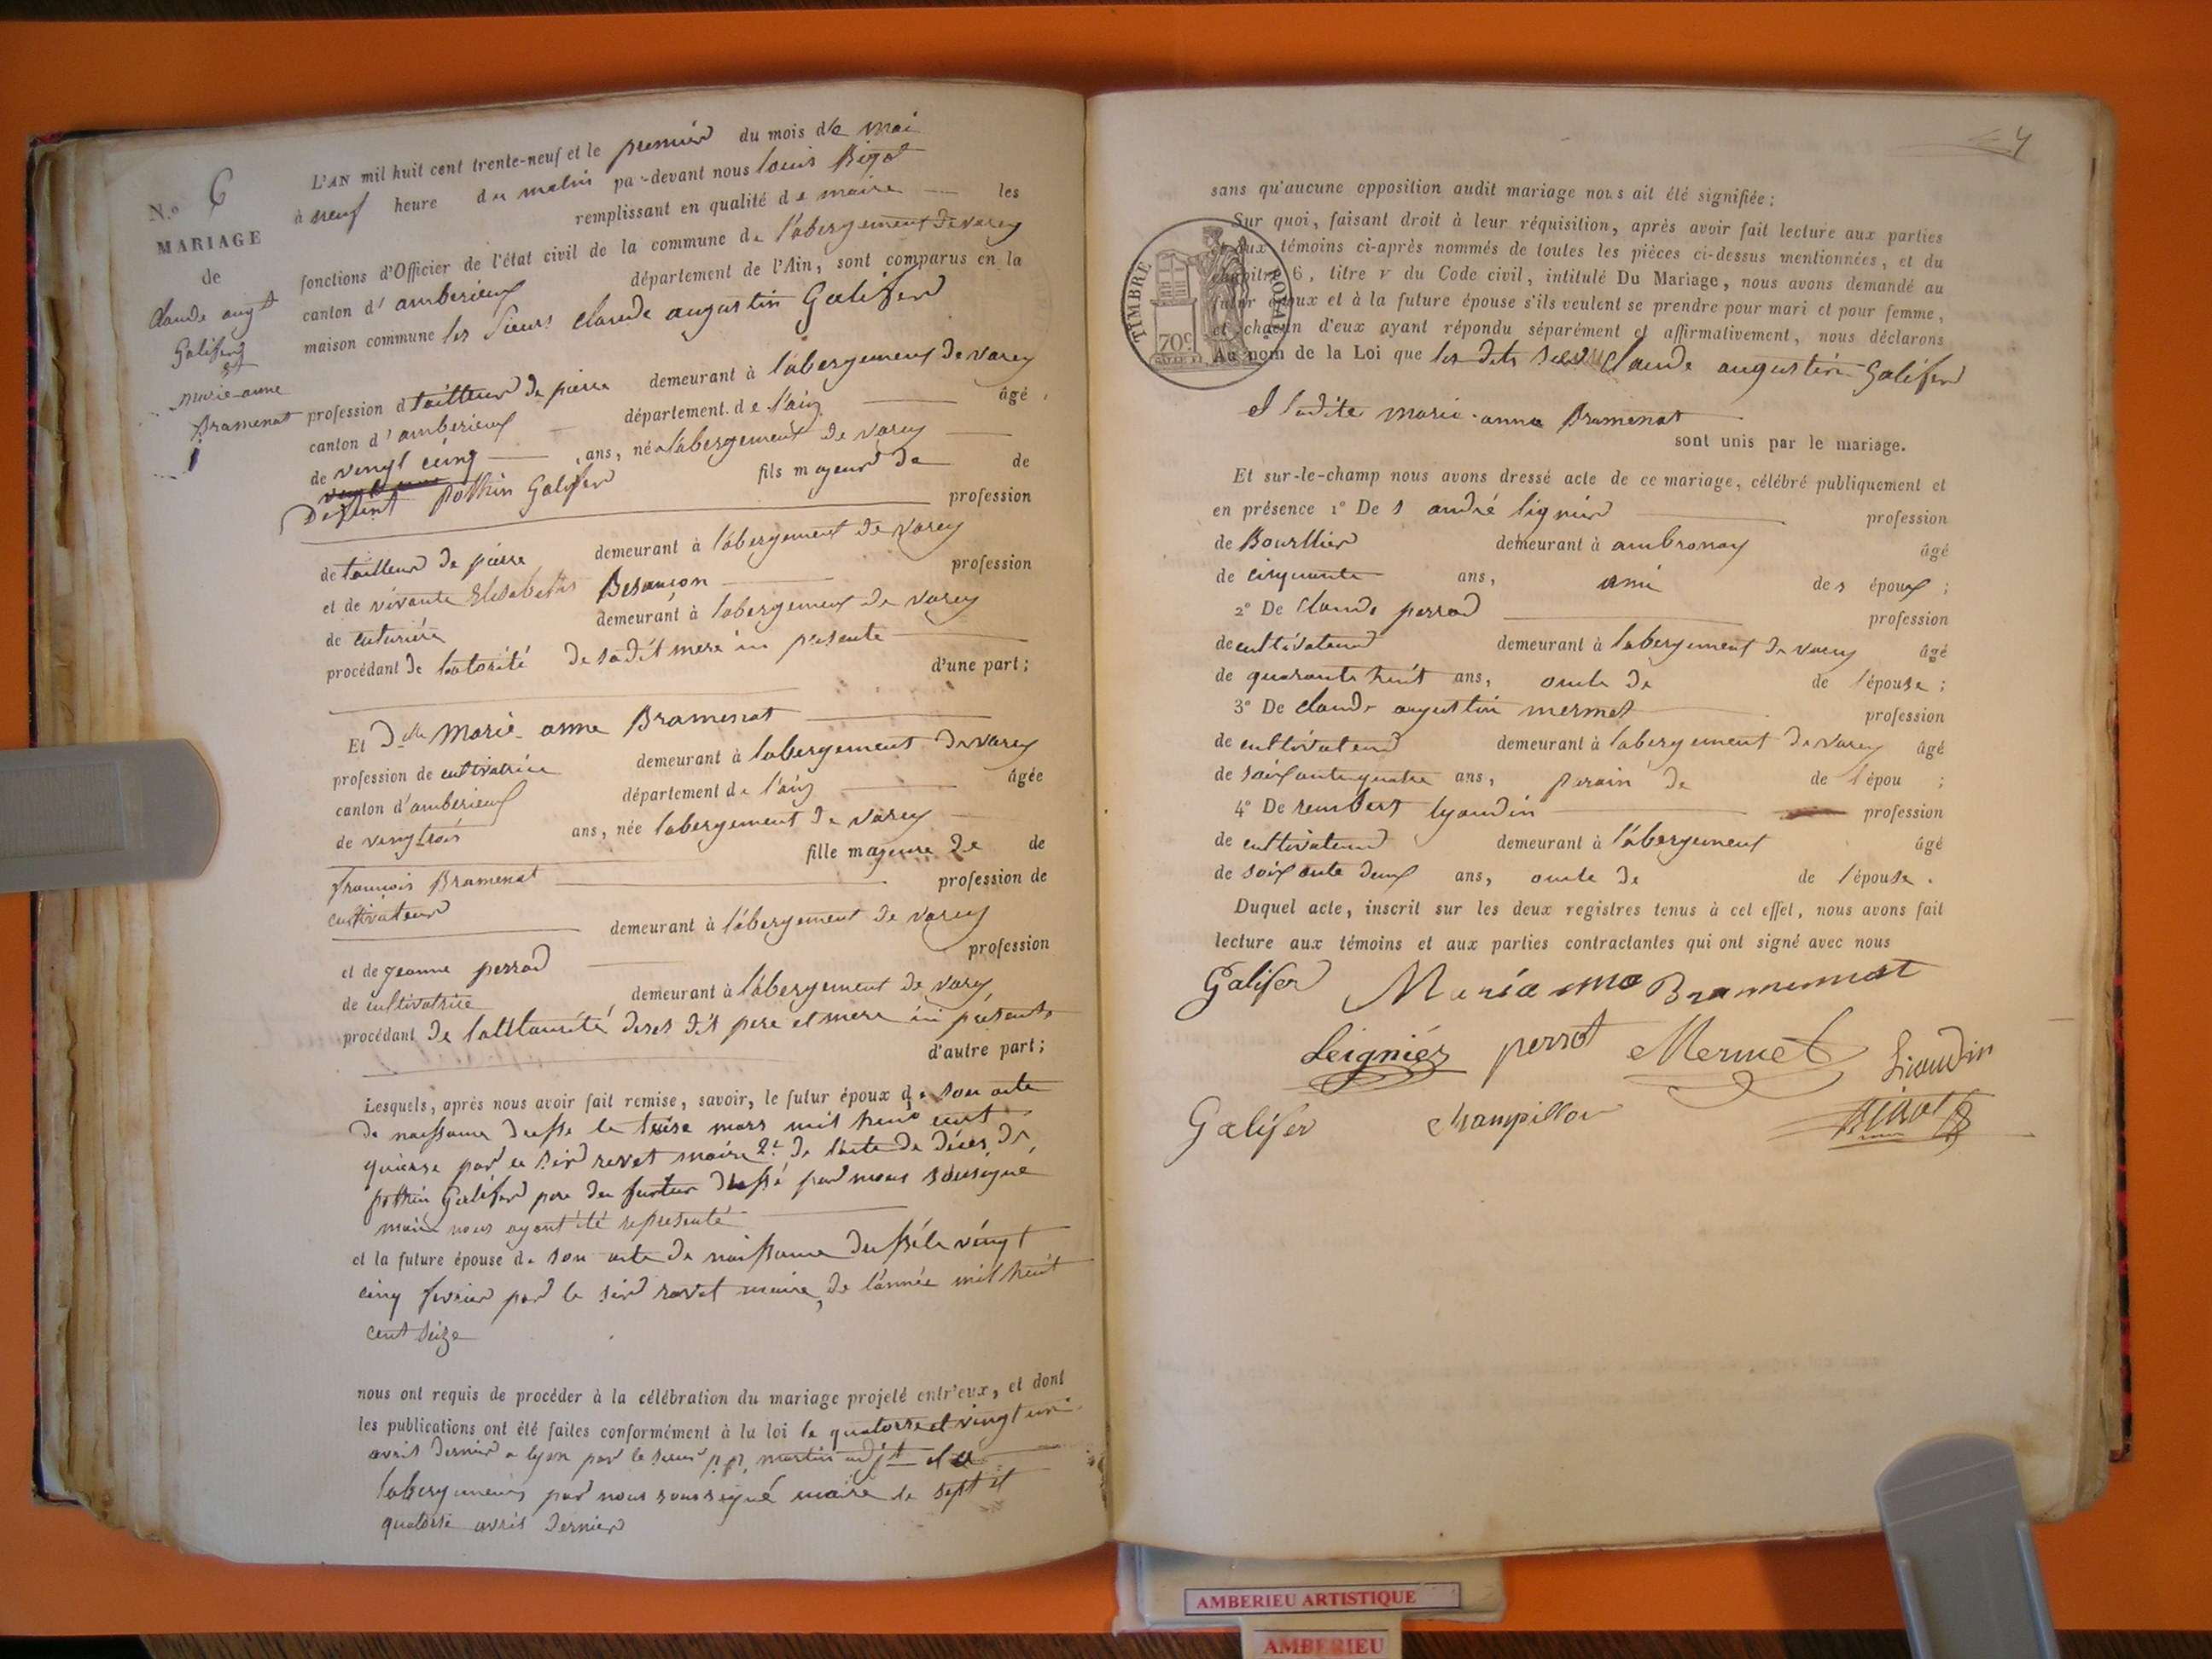 N.o 6
MARIAGE
de
Claude augt
Galifer
et
marie-anne
Bramenat
L'AN mil huit cent trente-neuf et le premier du mois de mai
à neuf heure du matin par-devant nous louis Bigot
remplissant en qualité de maire les
fonctions d'Officier de l'état civil de la commune de l'abergement de varey
canton d'amberieux département de l'Ain, sont comparus en la
maison commune les sieurs claude augustin Galifer
profession d tailleur de pierre demeurant à l'abergement de varey
canton d'amberieux département de l'ain âgé
de vingt cinq ans, né a l'abergement de varey
fils majeur de de
Defunt pothin Galifer profession
de tailleur de pierre demeurant à l'abergement de varey
et de vivante Elisabeth Besançon profession
de cuturière demeurant à l'abergement de varey
procédant de lautorité de sadit mere ici présente
d'une part;
Et Dlle Marie-anne Bramenat
profession de cultivatrice demeurant à labergement de varey
canton d'amberieux département de l'ain âgée
de vingtrois ans, née labergement de varey
fille majeure de de
françois Bramenat profession de
cultivateur demeurant à l'abergement de varey
et de jeanne perrod profession
de cultivatrice demeurant à l'abergement de varey
procédant de lauttaurité deses dit pere et mere ici présents
d'autre part;
Lesquels, après nous avoir fait remise, savoir, le futur époux de son acte
de naissance dressé le treise mars mil huit cent
quinse par le sieur revet maire 2.t de lacte de décés de
pothin Galifer pere du furtur dressé par nous sousigné
maire nous ayant été représenté
et la future épouse de son acte de naissance dressé le vingt
cinq fevrier par le sieur ravet maire, de l'année mil huit
cent seize
nous ont requis de procéder à la célébration du mariage projeté entr'eux, et dont
les publications ont été faites conformément à la loi le quatorse et vingt un
avril dernier a lyon par le sieur p. p. martin adjt et a
labergement par nous soussigné maire le sept et
quatorse avril dernier
4
sans qu'aucune opposition audit mariage nous ait été signifiée;
Sur quoi, faisant droit à leur réquisition, après avoir fait lecture aux parties
et aux témoins ci-après nommés de toutes les pièces ci-dessus mentionnées, et du
chapitre 6, titre v du Code civil, intitulé Du Mariage, nous avons demandé au
futur époux et à la future épouse s'ils veulent se prendre pour mari et pour femme,
et chacun d'eux ayant répondu séparément et affirmativement, nous déclarons
Au nom de la Loi que les dits Claude augustin Galifer
TIMBRE ROYAL
70c
et ladite marie-anne Bramenat
sont unis par le mariage.
Et sur-le-champ nous avons dressé acte de ce mariage, célébré publiquement et
en présence 1° De s andré lignier profession
de Bourllier demeurant à ambronay âgé
de cinquante ans, ami des époux;
2° De Claude perrod profession
de cultivateur demeurant à labergement de varey âgé
de quarante huit ans, oncle de de l'épouse;
3° De claude augustin mermet profession
de cultivateur demeurant à l'abergement de varey âgé
de soixante quatre ans, parain de de l'épou;
4° De rembert lyaudin profession
de cultivateur demeurant à l'abergement âgé
de soixante deux ans, oncle de de l'épouse.
Duquel acte, inscrit sur les deux registres tenus à cet effet, nous avons fait
lecture aux témoins et aux parties contractantes qui ont signé avec nous
Galifer Maria nna Brammenat
Leigniér perrot Mermet Liaudin
Galifer Champillon Bigot
AMBERIEU ARTISTIQUE
AMBERIEU